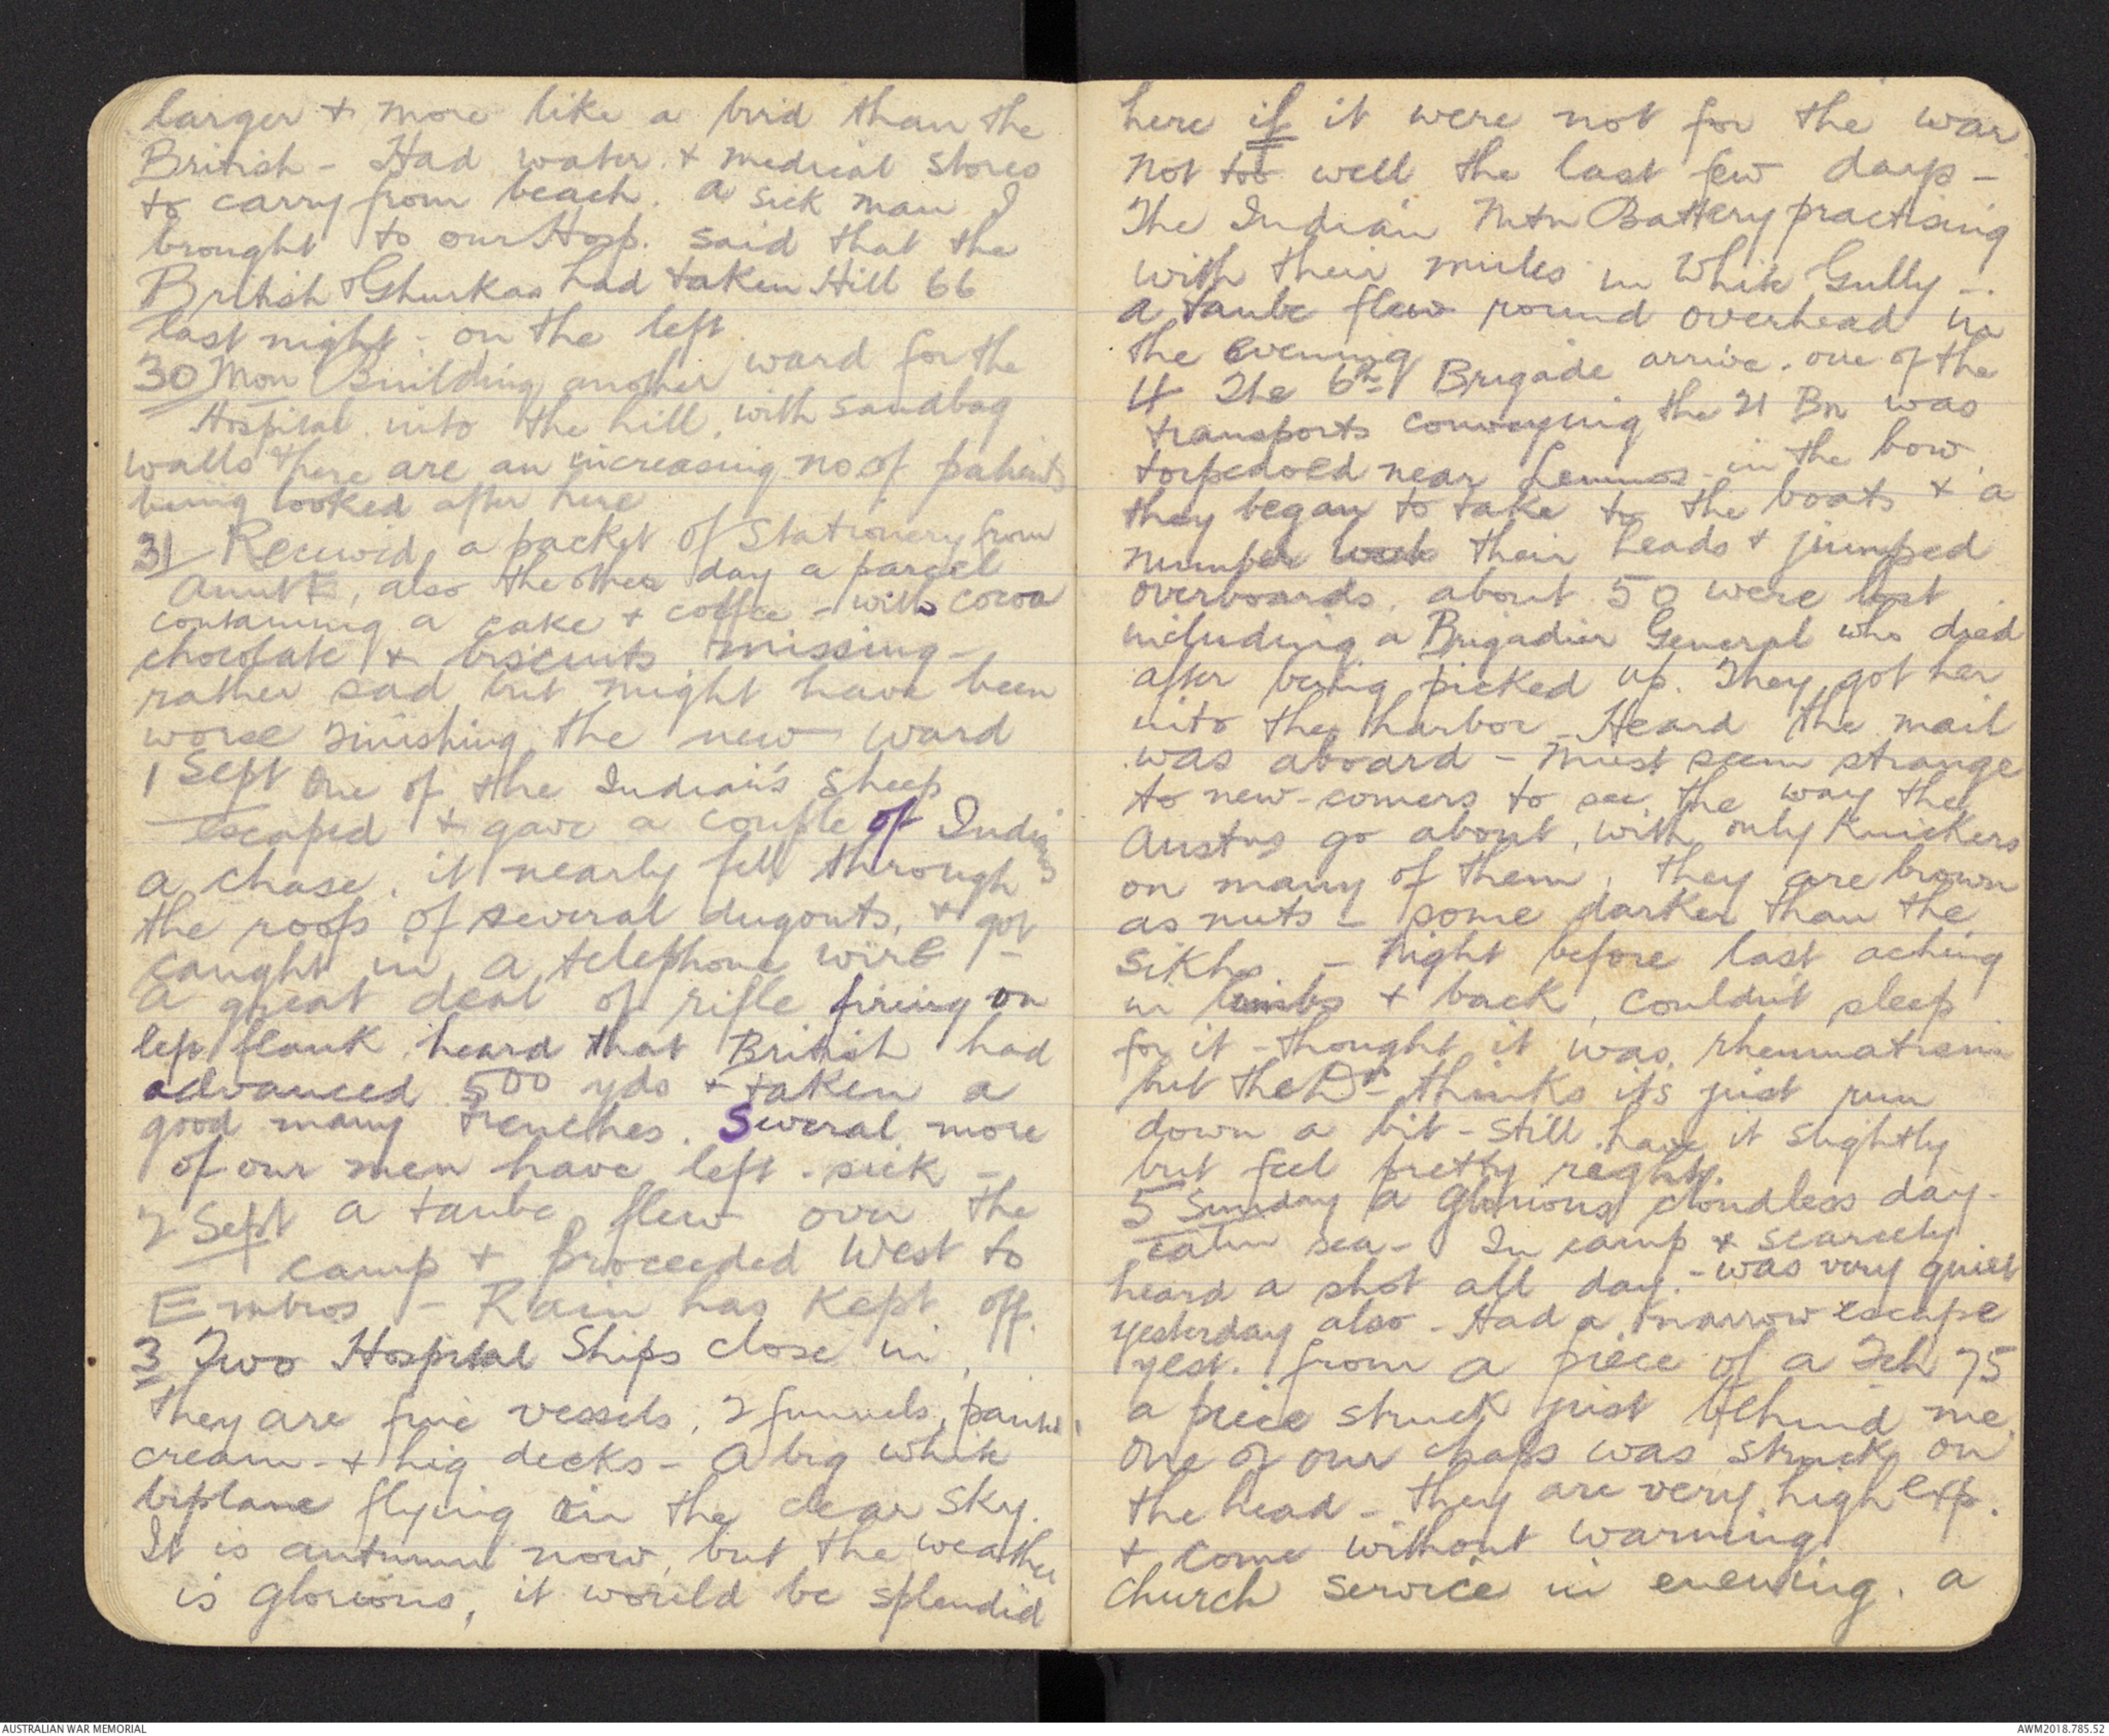 larger + more like a bird than the
British - Had water. + medical stores
to carry from beach. A sick man I
brought to our Hosp. said that the
British & Ghurkas had taken Hill 66
last night - on the left
30 Mon Building another ward for the
Hospital into the hill, with sandbag
walls there are an increasing no of patients
being looked after here
31 Received a packet of Stationery from
Aunt E, also the other day a parcel
containing a cake + coffee - with cocoa
chocolate + biscuits missing -
rather sad but might have been
worse finishing the new ward
1 Sept One of the Indian's sheep
escaped + gave a couple of Indians
a chase. it nearly fell through
the roofs of several dugouts, + got
caught in a telephone wire -
A great deal of rifle firing on
left flank, heard that British had
advanced 500 yds + taken a
good many trenches. Several more
of our men have left - sick -
2 Sept A taube flew over the
camp + proceeded West to
Embros - Rain has kept off.
3 Two Hospital Ships close in,
they are fine vessels, 2 funnels, painted
cream - + hig decks - A big white
biplane flying in the clear sky.
It is autumn now, but the weather
is glorious, it would be splendid
here if it were not for the war
Not too well the last few days -
The Indian Mtn Battery practising
with their mules in White Gully -
A taube flew round overhead in
the evening
4 The 6th Brigade arrive. one of the
transports conveying the 21 Bn was
torpedoed near Lemnos - in the bow.
they began to take to the boats + a
number lost their heads + jumped
overboards. about 50 were lost
including a Brigadier General who died
after being picked up. They got her
into the harbor - Heard the mail
was aboard - Must seem strange
to new-comers to see the way the
Austns go about, with only knickers
on many of them, they are brown
as nuts - some darker than the
Sikhs. - Night before last aching
in limbs + back, couldn't sleep
for it - thought it was rheumatism
but the Dr thinks its just run
down a bit - still have it slightly
but feel pretty right.
5 Sunday A glorious cloudless day -
calm sea - In camp + scarcely
heard a shot all day. - was very quiet
yesterday also - Had a narrow escape
yest. from a piece of a Fch 75
a piece struck just behind me.
One of our chaps was struck on
the head - they are very high exp.
+ come without warning
Church service in evening. a
AUSTRALIAN WAR MEMORIAL
AWM2018.785.52